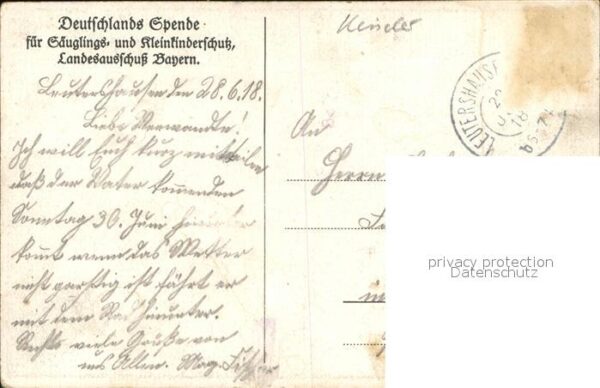 Deutschlands Spende
für Säuglings- und Kleinkinderschutz,
Landesausschuß Bayern.
Leutershausen den 28.6.18.
Liebe Verwandte!
Ich will Euch kurz mitteilen
daß der Vater kommenden
Sonntag 30. Juni hinunter
kommt wenn das Wetter
nicht garstig ist fährt er
mit dem Rad hinunter.
viele Grüße von
uns Allen. Mag.
Kinder
LEUTERSHAUS
An
Herrn
in
privacy protection
Datenschutz